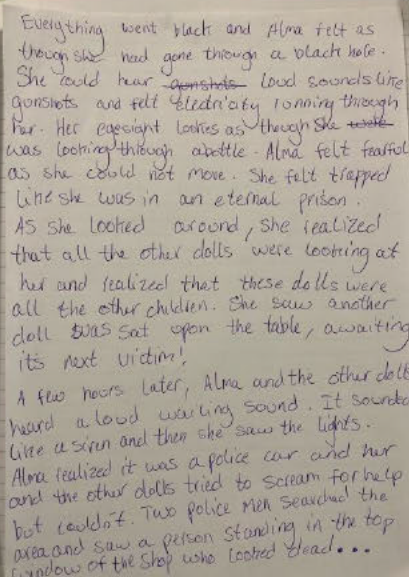 Everything went black and Alma felt as
though she had gone through a black hole.
She could hear gunshots loud sounds like
gunshots and felt electricity running through
her. Her eyesight lookes as though she were
was looking through a bottle. Alma felt fearful
as she could not move. She felt trapped
like she was in an eternal prison.
As she looked around, she realized
that all the other dolls were looking at
her and realized that these dolls were
all the other children. She saw another
doll was sat upon the table, awaiting
it's next victim!
A few hours later, Alma and the other doll
heard a loud wailing sound. It sounded
like a siren and then she saw the lights.
Alma realized it was a police car and her
and the other dolls tried to scream for help
but couldn't. Two police men searched the
area and saw a person standing in the top
window of the shop who looked dead...